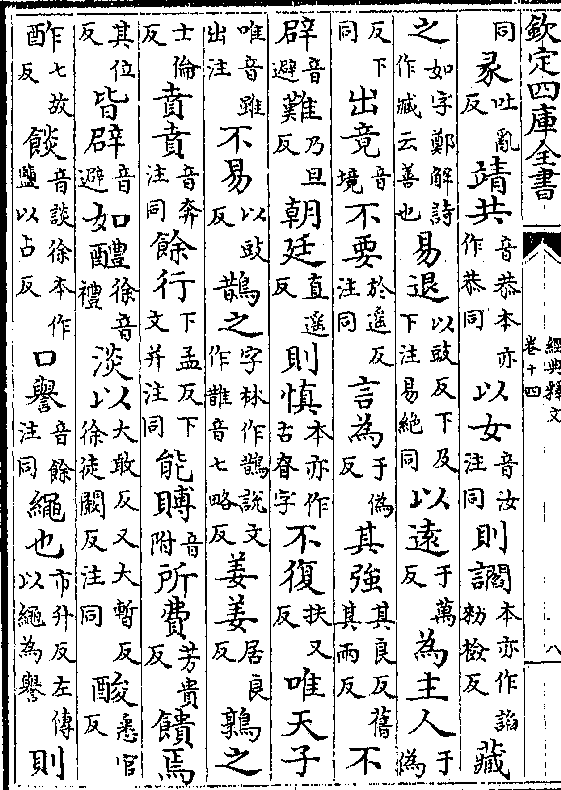 欽定四庫全書 經典釋文 卷十四 八
同彖吐亂反靖共音恭本亦作恭同以女音汝注同則讇本亦作諂勑檢反藏
之如字鄭解詩作臧云善也易退以豉反下及下注易絶同以遠于萬反為主人于偽
反下同出竟音境不要於遥反注同言為于偽反其強其良反舊其兩反不
辟音避難乃旦反朝廷直遥反則慎本亦作古昚字不復扶又反唯天子
唯音雖出注不易以豉反鵲之字林作鵲說文作䧿音七略反姜姜居良反鶉之
士倫反賁賁音奔注同餘行下孟反下文并注同能賻音附所費芳貴反饋焉
其位反皆辟音避如醴徐音禮淡以大敢反又大暫反徐徒闞反注同酸悉官反
酢七故反餤音談徐本作鹽以占反口譽音餘注同繩也市升反左傳以繩為譽則